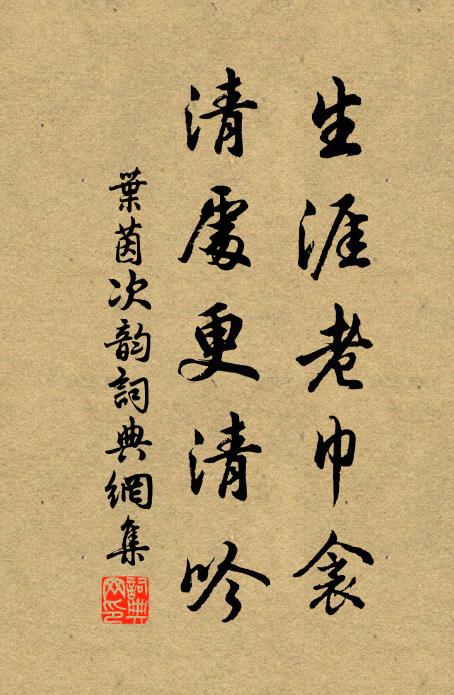 生涯老巾衾
清處更清吟
葉茵次韵詞典網集
詞典網印